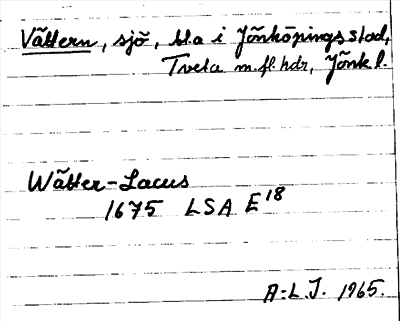 Vättern, sjö, bl.a i Jönköpings stad,
Tveta m.fl. hdr, Jönk. l.
Wätter-Lacus
1675 LSA E18
A:L.J. 1965.